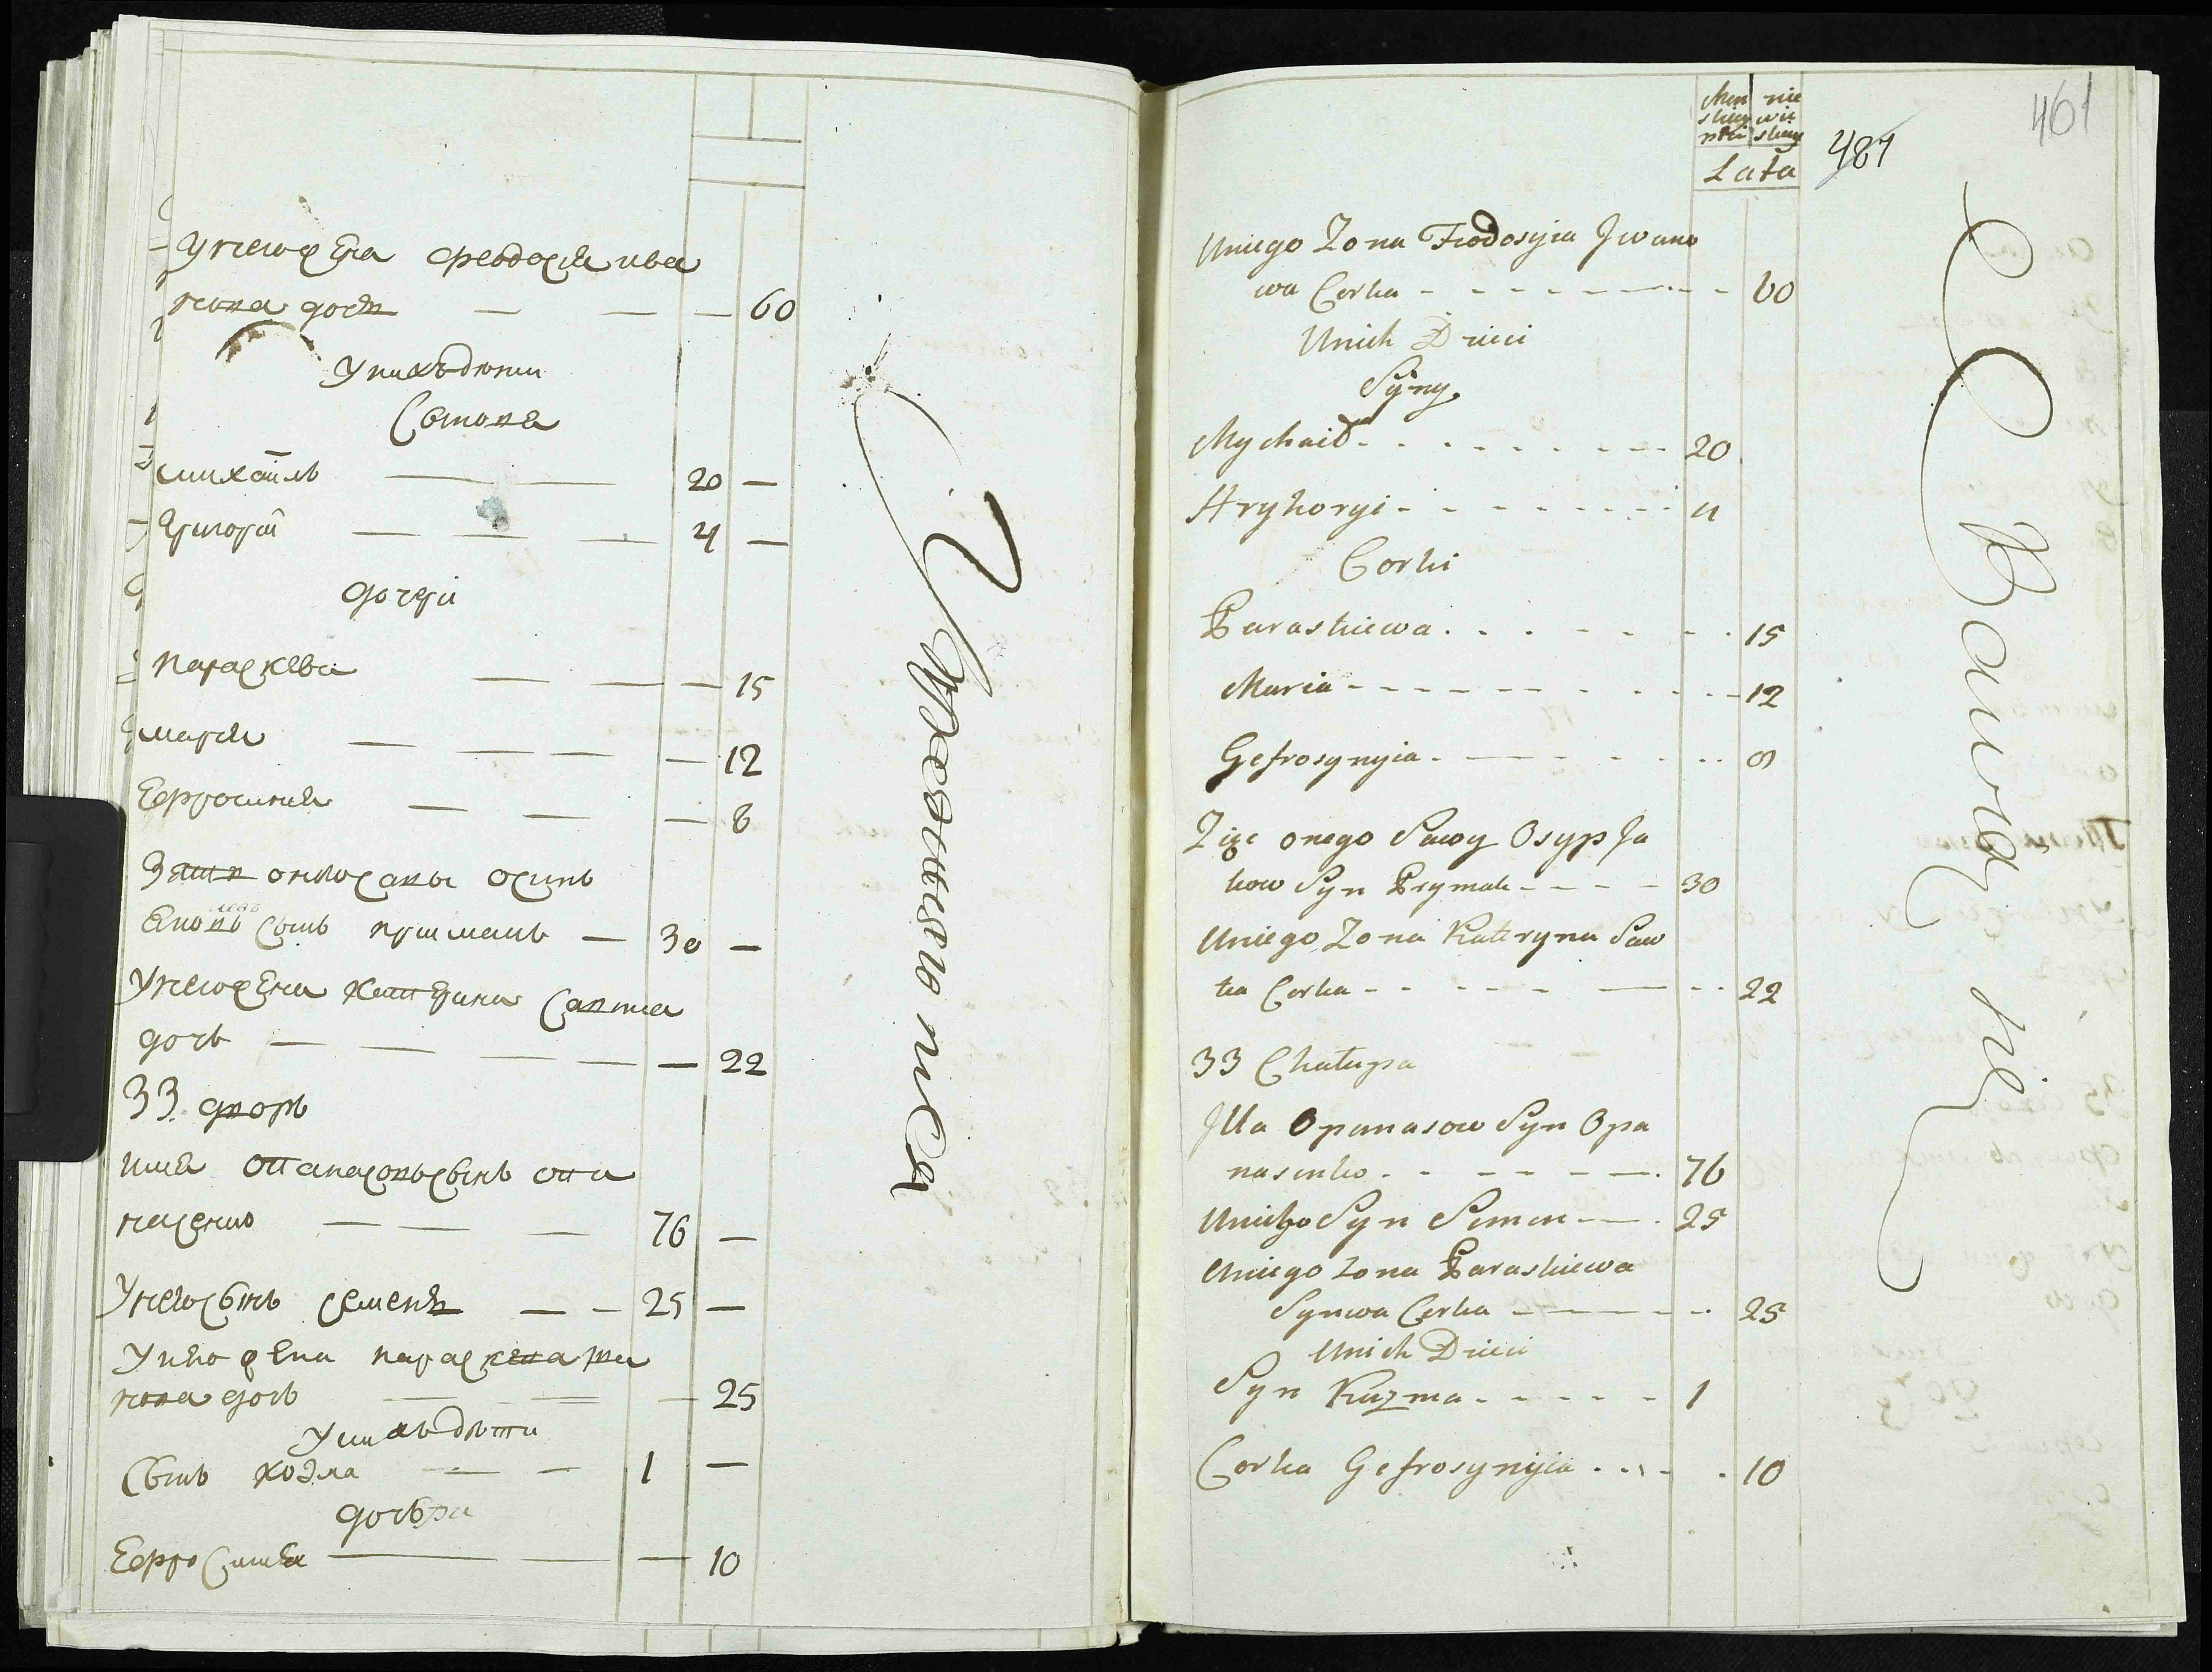 У него жена феодосия ива
нова дочь — — — 60
У нихъ дѣти
Сынове
михаилъ — — 20 —
григорій — — — 4 —
дочери
параскева — — — 15
мария — — — — 12
Ефросиния — — — 8
Зять онаго савы осипъ
яковлевъ сынъ приймакъ — 30 —
У него жена катерина савина
дочь — — — — — 22
33 дворъ
илия опанасовъ сынъ опа
насенко — — — 76 —
У него сынъ семенъ — — 25 —
У него жена параскева
нова дочь — — — 25
У нихъ дѣти
Сынъ козма — — 1 —
дочери
Ефросиния — — — 10
461
481
Męn nie
skiej wie
płci skiey
Lata
Uniego Zona Fiodosyia Jwano
wa Corka - - - - - - - 60
Unich Dzieci
Syny
Mychaił - - - - - - - 20
Hryhoryi - - - - - - - 4
Corki
Paraskiewa - - - - - - 15
Maria - - - - - - - - 12
Gefrosynyia - - - - - - 8
Zięc onego Sawy Osyp Ja
kow Syn Prymak - - - - 30
Uniego Zona Kateryna Saw
ka Corka - - - - - - - 22
33 Chałupa
Jlla Opanasow Syn Opa
nasenko - - - - - - 76
Uniego Syn Semen - - - 25
Uniego Zona Paraskiewa
Corka - - - - - 25
Unich Dzieci
Syn Kuzma - - - - - 1
Corka Gefrosynyia - - - - 10